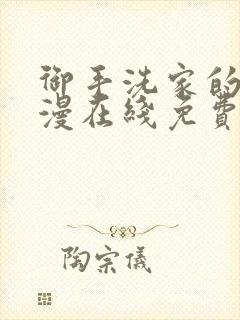 御手洗家的
漫在綫免費
陶宗儀